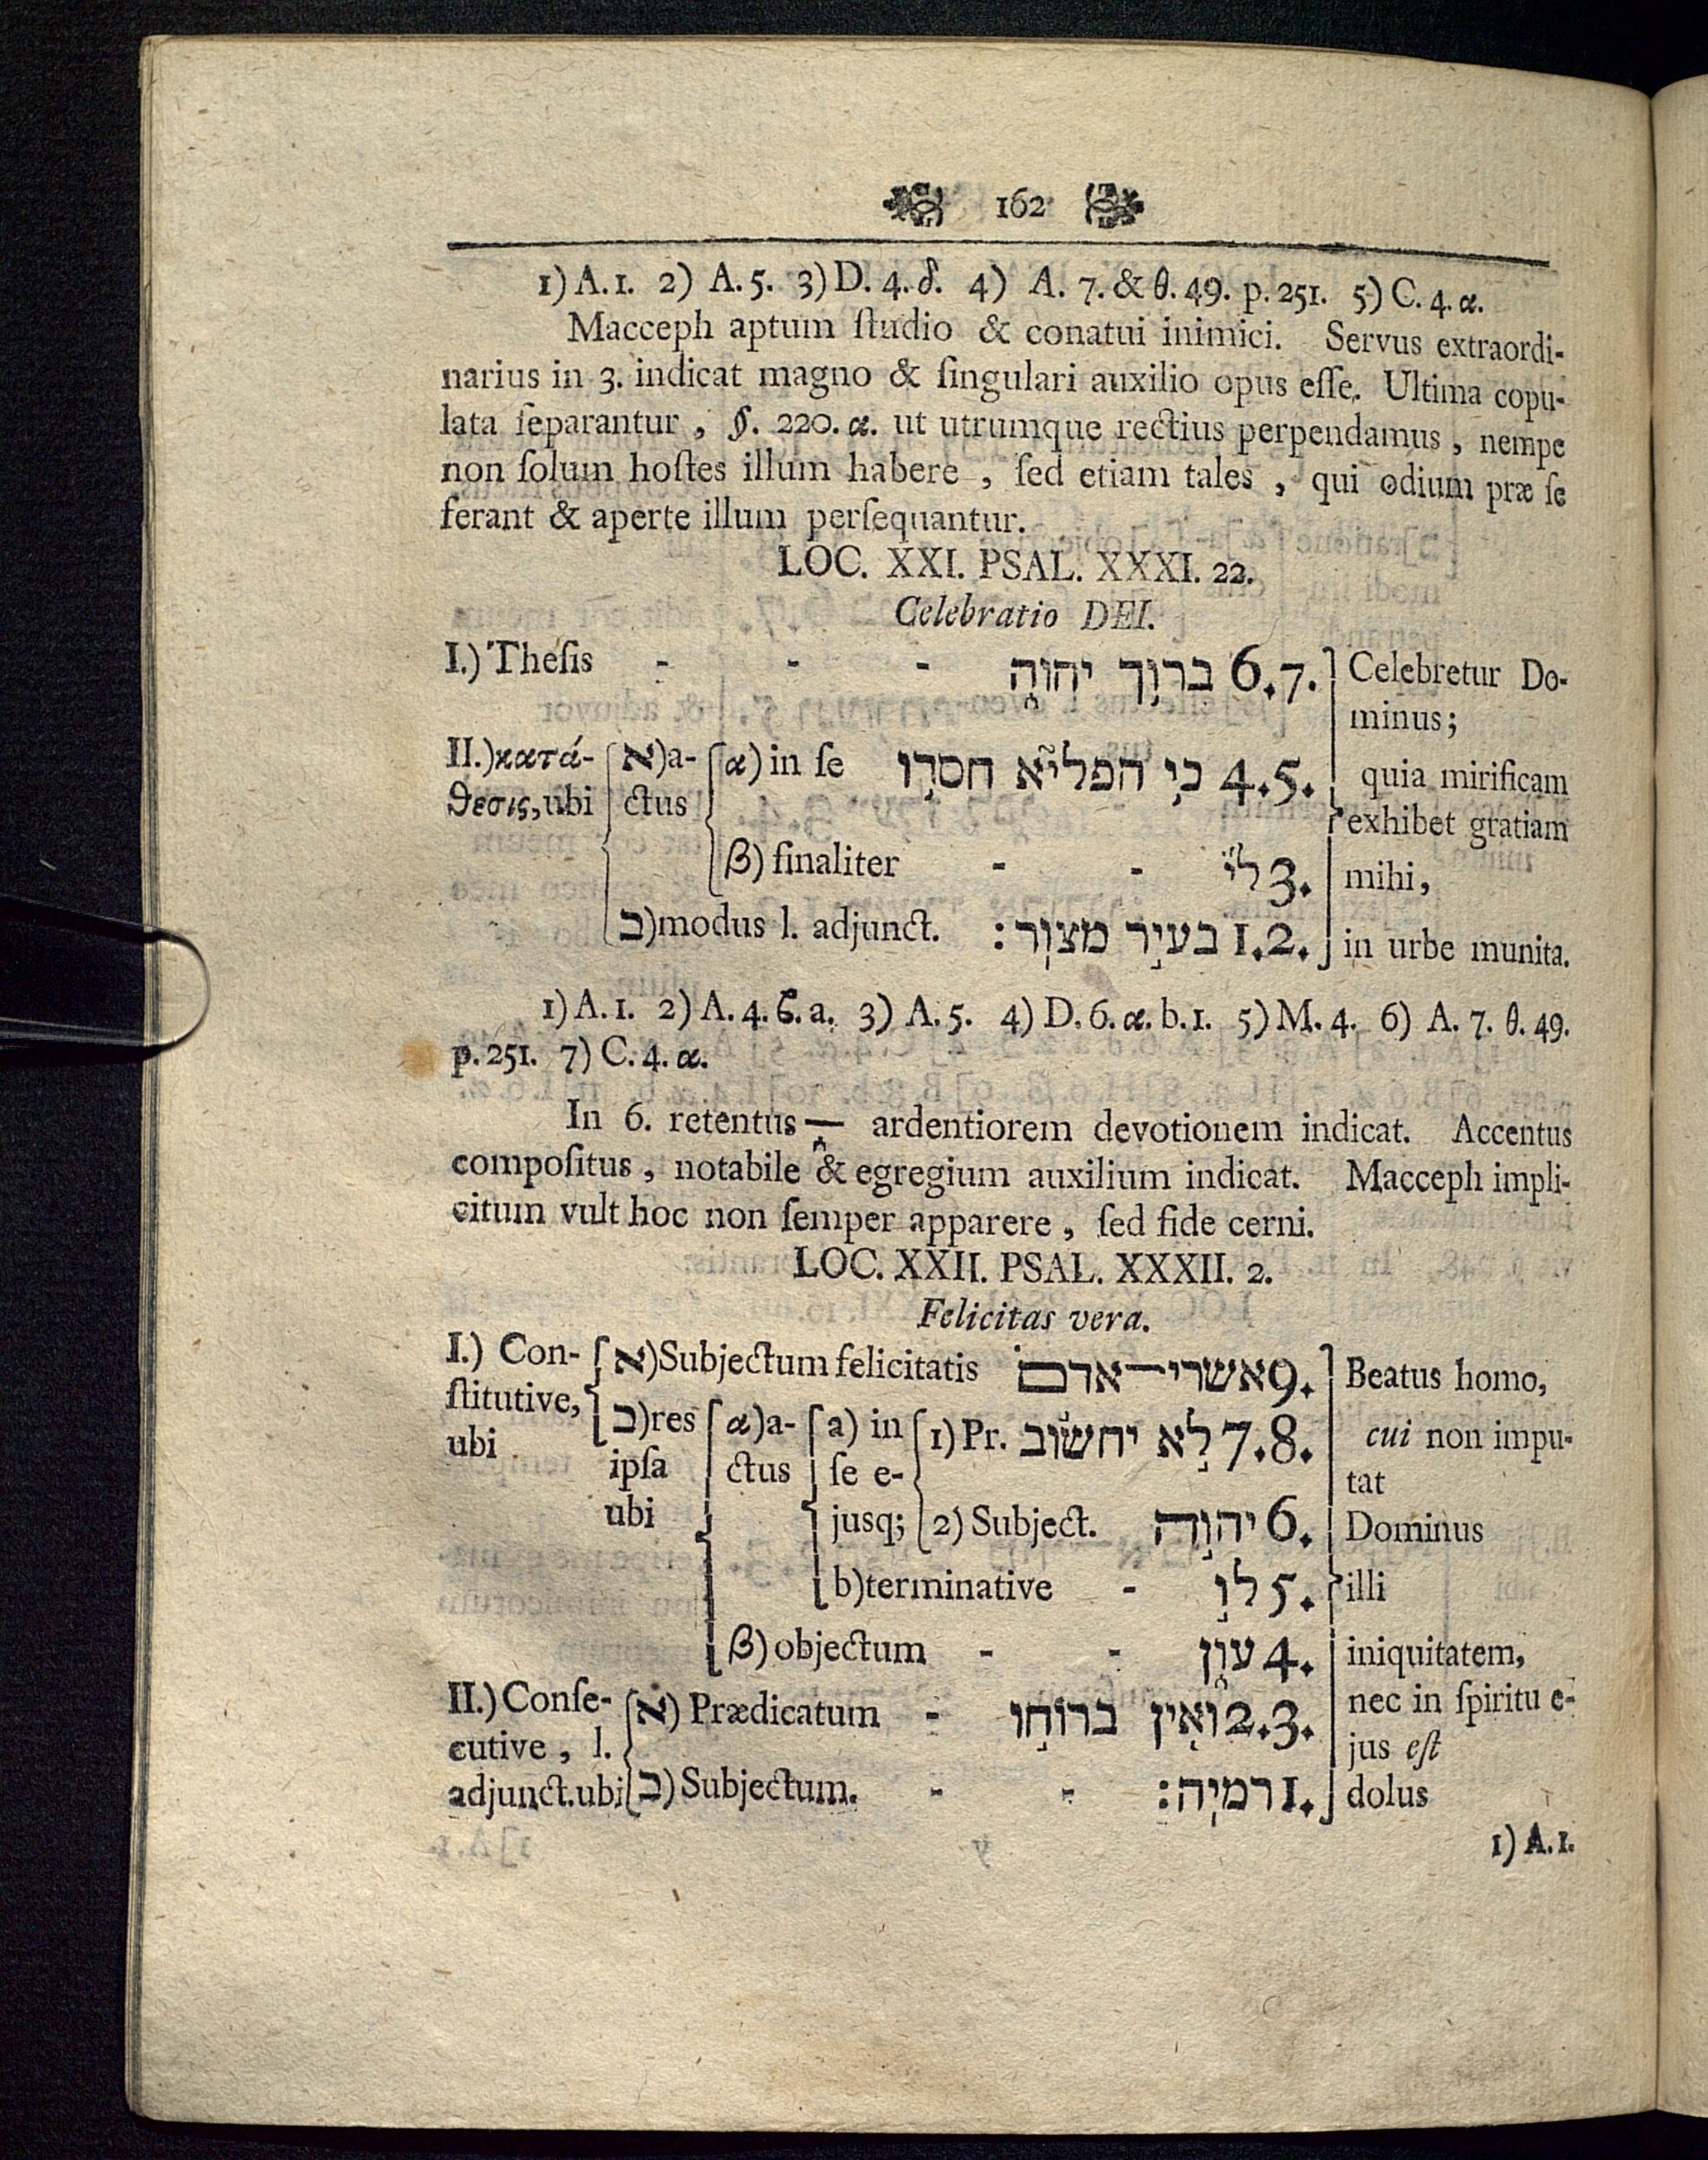 162
1) A. 1. 2) A. 5. 3) D. 4. δ. 4) A. 7. & θ. 49. p. 251. 5) C. 4. α.
Macceph aptum ſtudio & conatui inimici. Servus extraordi-
narius in 3. indicat magno & ſingulari auxilio opus eſſe. Ultima copu-
lata ſeparantur, §. 220. α. ut utrumque rectius perpendamus, nempe
non ſolum hoſtes illum habere, ſed etiam tales, qui odium præ ſe
ferant & aperte illum perſequantur.
LOC. XXI. PSAL. XXXI. 22.
Celebratio DEI.
I.) Theſis - - - 6.7. ברו֥ך יהו֑ה Celebretur Do-
minus;
II.) κατά- א) a- α) in ſe 4.5. כ֥י הפל֘יא חסד֥ו quia mirificam
θεσις, ubi ctus exhibet gratiam
β) finaliter - - 3. ל֝י mihi,
ב) modus l. adjunct. 1.2. בע֥יר מצֽור׃ in urbe munita.
1) A. 1. 2) A. 4. ϐ. a. 3) A. 5. 4) D. 6. α. b. 1. 5) M. 4. 6) A. 7. θ. 49.
p. 251. 7) C. 4. α.
In 6. retentus —֑ ardentiorem devotionem indicat. Accentus
compoſitus, notabile & egregium auxilium indicat. Macceph impli-
citum vult hoc non ſemper apparere, ſed fide cerni.
LOC. XXII. PSAL. XXXII. 2.
Felicitas vera.
I.) Con- א) Subjectum felicitatis 9. אשרי־אדם֗ Beatus homo,
ſtitutive, ב) res α) a- a) in 1) Pr. 7.8. ל֥א יחש֬וב cui non impu-
ubi ipſa ctus ſe e- tat
ubi jusq; 2) Subject. 6. יהו֣ה Dominus
b) terminative - 5. ל֣ו illi
β) objectum - - 4. עו֑ן iniquitatem,
II.) Conſe- א) Prædicatum - 2.3. וא֖ין ברוח֣ו nec in ſpiritu e-
cutive, l. jus eſt
adjunct. ubi ב) Subjectum. - - 1. רמיֽה׃ dolus
1) A. 1.